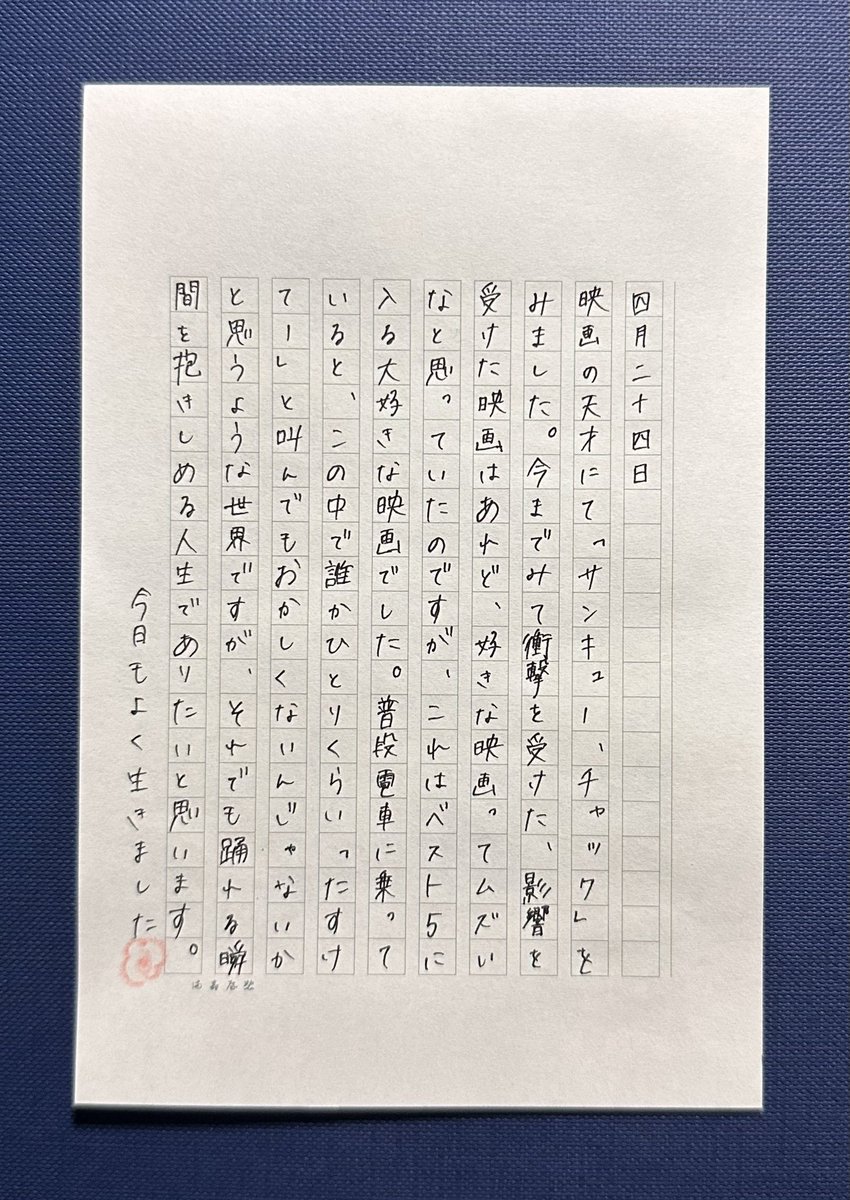 四月二十四日
映画の天才にて「サンキュー、チャック」を
みました。今までみて衝撃を受けた、影響を
受けた映画はあれど、好きな映画ってムズい
なと思っていたのですが、これはベスト5に
入る大好きな映画でした。普段電車に乗って
いると、この中で誰かひとりくらい「たすけ
てー」と叫んでもおかしくないんじゃないか
と思うような世界ですが、それでも踊れる瞬
間を抱きしめる人生でありたいと思います。
今日もよく生きました